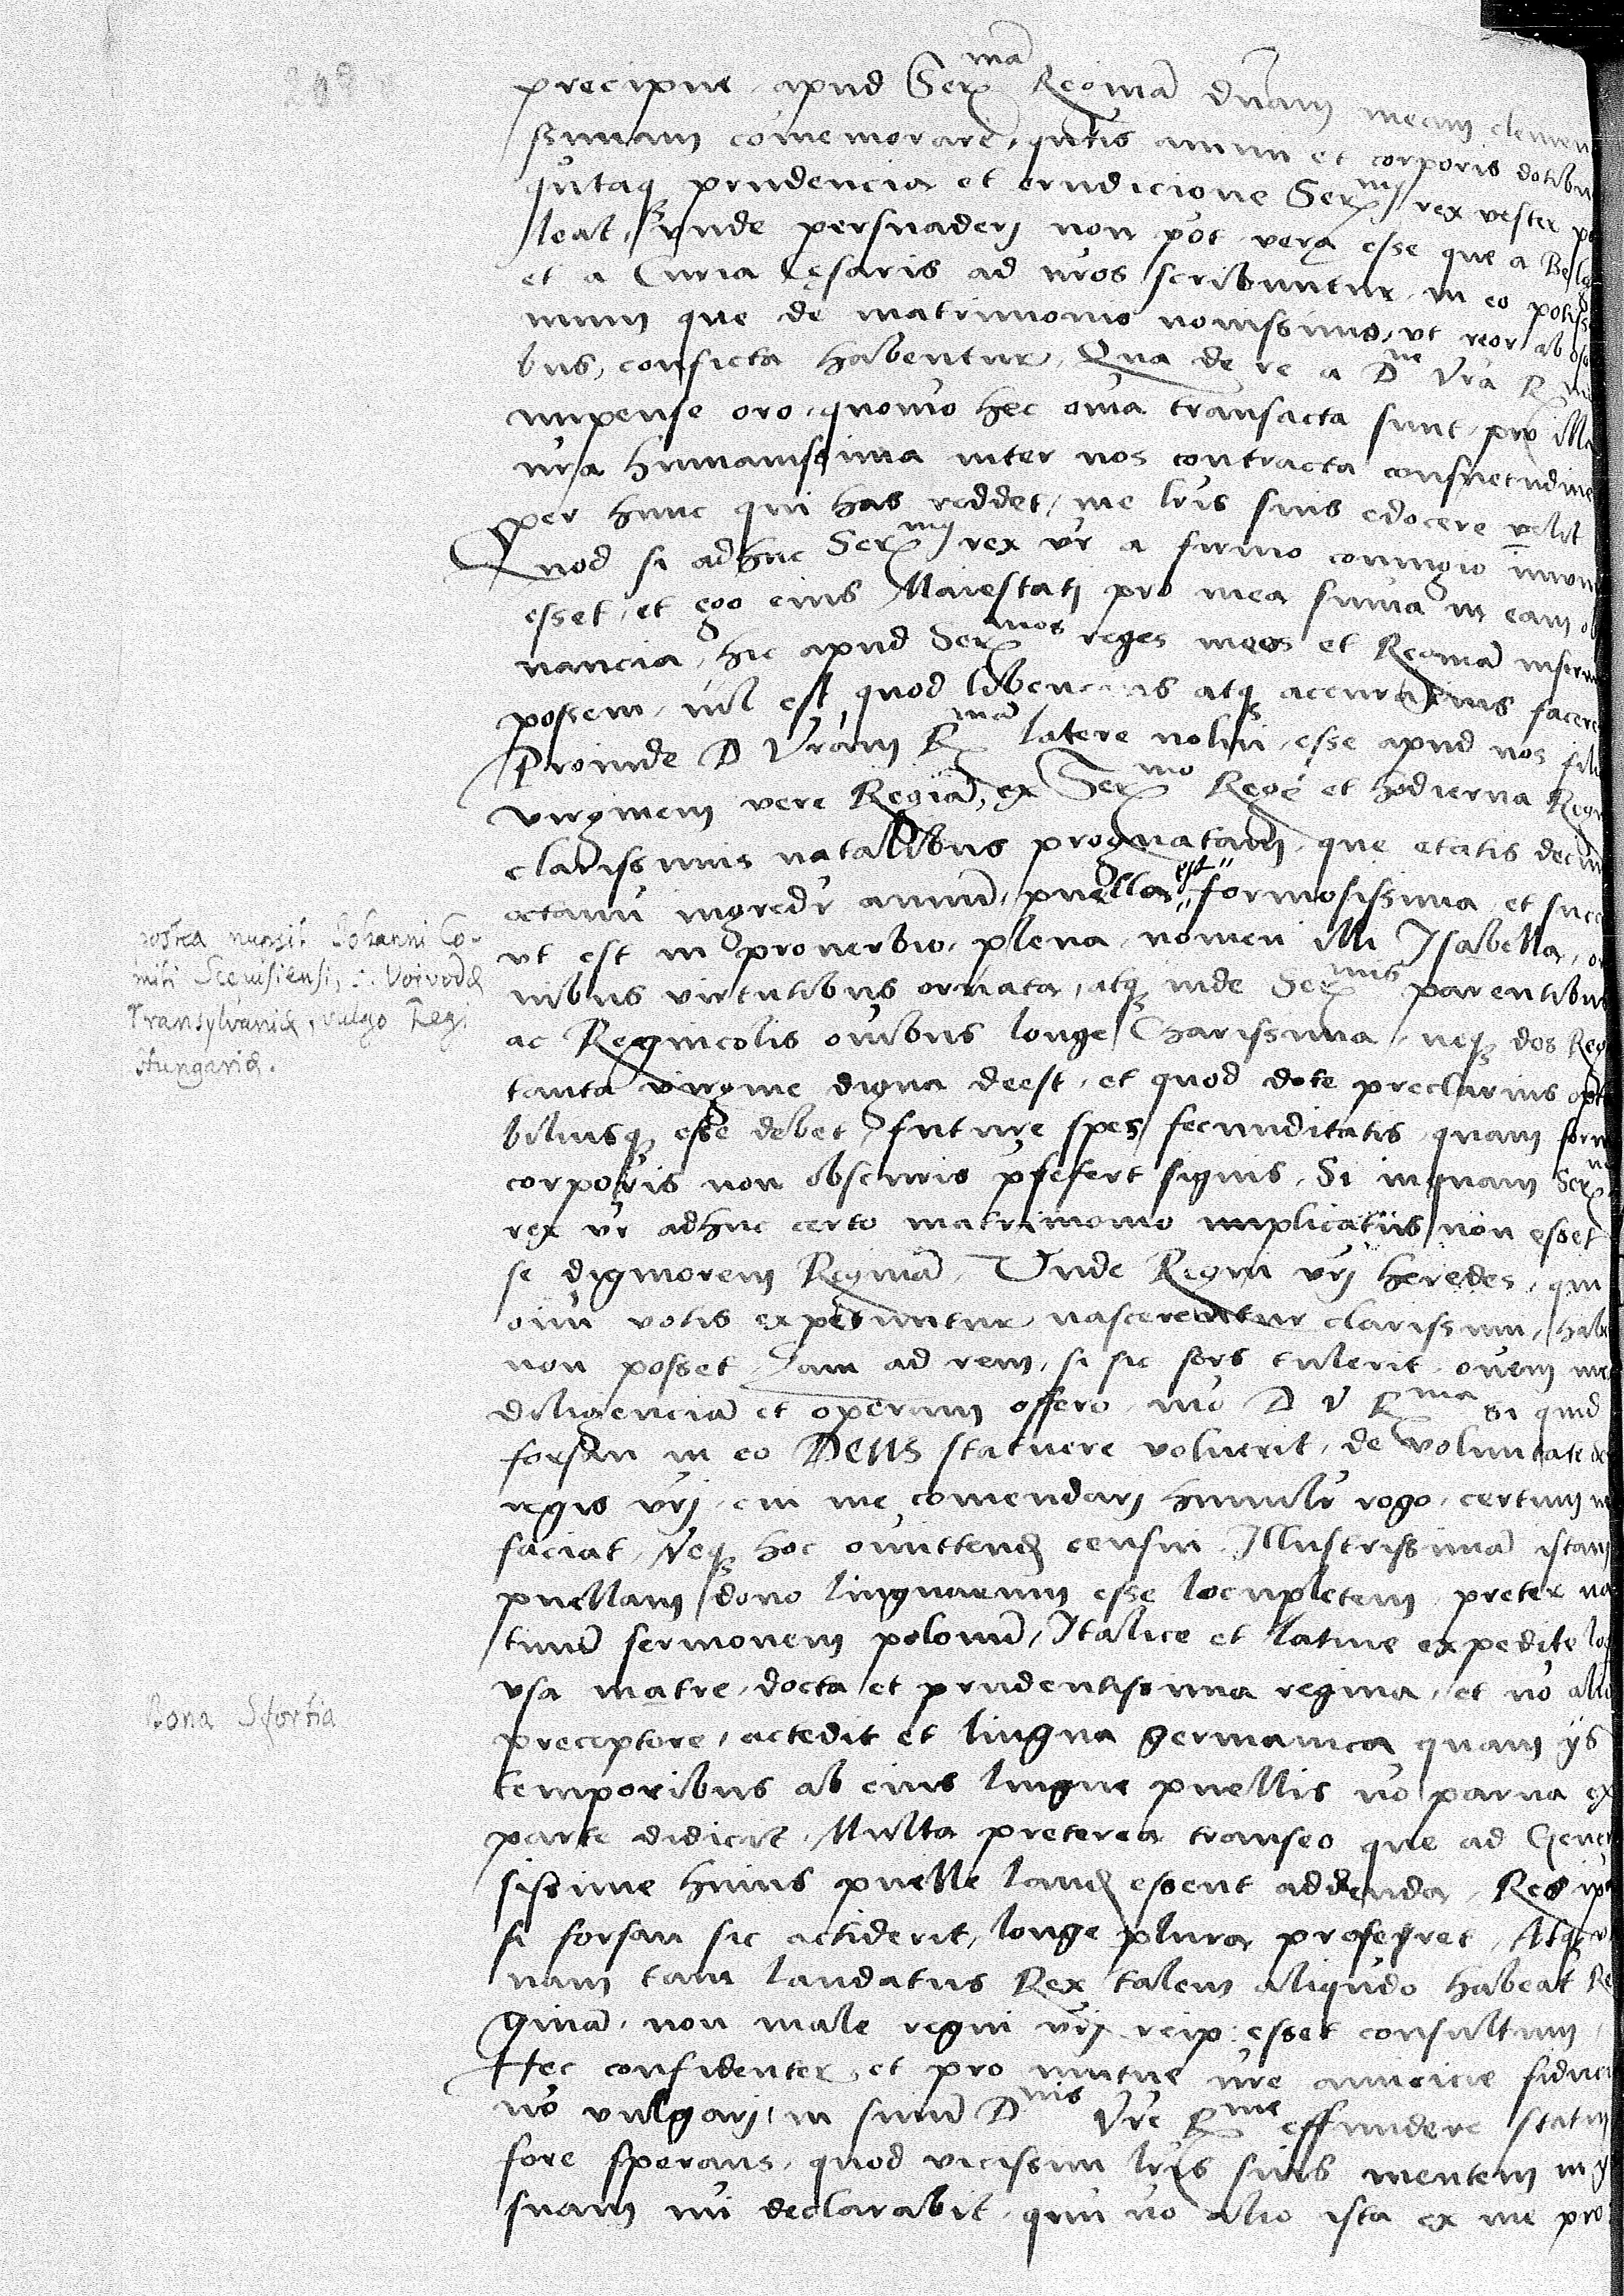 precipue apud Ser^ma Reginā dn̄am meam clemen
ssimam cōmemorare, qūtis animi et corporis dotibu
qūtaq prudencia et erudicione Ser^mus rex vester po
leat, unde persuaderj non pōt vera esse que a Belg
et a Curia Cęsaris ad nr̄os scribuntur, in eo potiss
mum que de matrimonio novissimo, ut reor ab
bus, conficta habentur, Qua de re a D^ne Vr̄a R
impense oro, quomō hec oīa transacta sunt, pro illa
nr̄a humanissima inter nos contracta consuetudine
per hunc qui has reddet, me lr̄is suis edocere velit
Quod si adhuc Ser^mus rex vr̄ a firmo coniugio
esset, et ego eius Maiestatj pro mea summa in eam ob
nancia, hic apud Ser^mos reges meos et Reginā inserui
possem, nil est quod libencius atq accuracius facere
Proinde D Vr̄am R^mā latere nolui, esse apud nos fili
virginem vere Regiā, ex Ser^mo Rege et hodierna Regi
clarissimis natalibus prognatam, que etatis decim
octavū ingredr̄ annū, puella est formosissima et succi
ut est in proverbio, plena, nomen illi Isabella, om
nibus virtutibus ornata, atq inde Ser^mis parentibus
ac Regnicolis oīibus longe Charissima, neq dos Reg
tanta virgine digna deest, et quod dote preclarius opt
biliusq esse debet, future spes fecunditatis, quam form
corporis non obscuris p̄fefert signis, Si inquam Ser^mus
rex vr̄ adhuc certo matrimonio implicatus non esset
se digniorem Reginā, Unde Regni vr̄j heredes, qui
oīū votis expetuntur nascerentur clarissimi, habe
non posset, Iam ad rem, si sic sors tulerit, oīem me
diligenciā et operam offero, mō D V R^ma si quid
forsan in eo DEUS statuere voluerit, de voluntate de
regis vr̄j, cui me comendarj humilr̄ rogo, certum me
faciat, Neq hoc omittend censui, Illustrissimā istam
puellam dono linguarum esse locupletem, preter na
tiuū sermonem polonū, Italice et latine expedite loq
usa matre, docta et prudentissima regina, et nō alio
preceptore, accedit et lingua germanica quam ijs
temporibus ab eius lingue puellis nō parva ex
parte didicit, Multa preterea transeo que ad Gene
sissime huius puelle laud essent addenda, Res ip
si forsan sic acciderit, longe plura proferret, Atq
nam tam laudatus Rex talem aliqūdo habeat Re
ginā, non male regni vr̄j reip: esset consultum,
Hec confidenter, et pro mutue nr̄e amicicie fiduci
nō vulgarj, in sinū D^nis Vr̄e R^me effundere statui
fore sperans, quod vicissim lr̄is suis mentem in
suam mi declarabit, qui nō alio ista ex me pro
postea nupsit Johanni Co-
miti Scepusiensi, Voivodæ
Transylvaniæ, vulgo Regi
Hungariæ.
Bona Sfortia